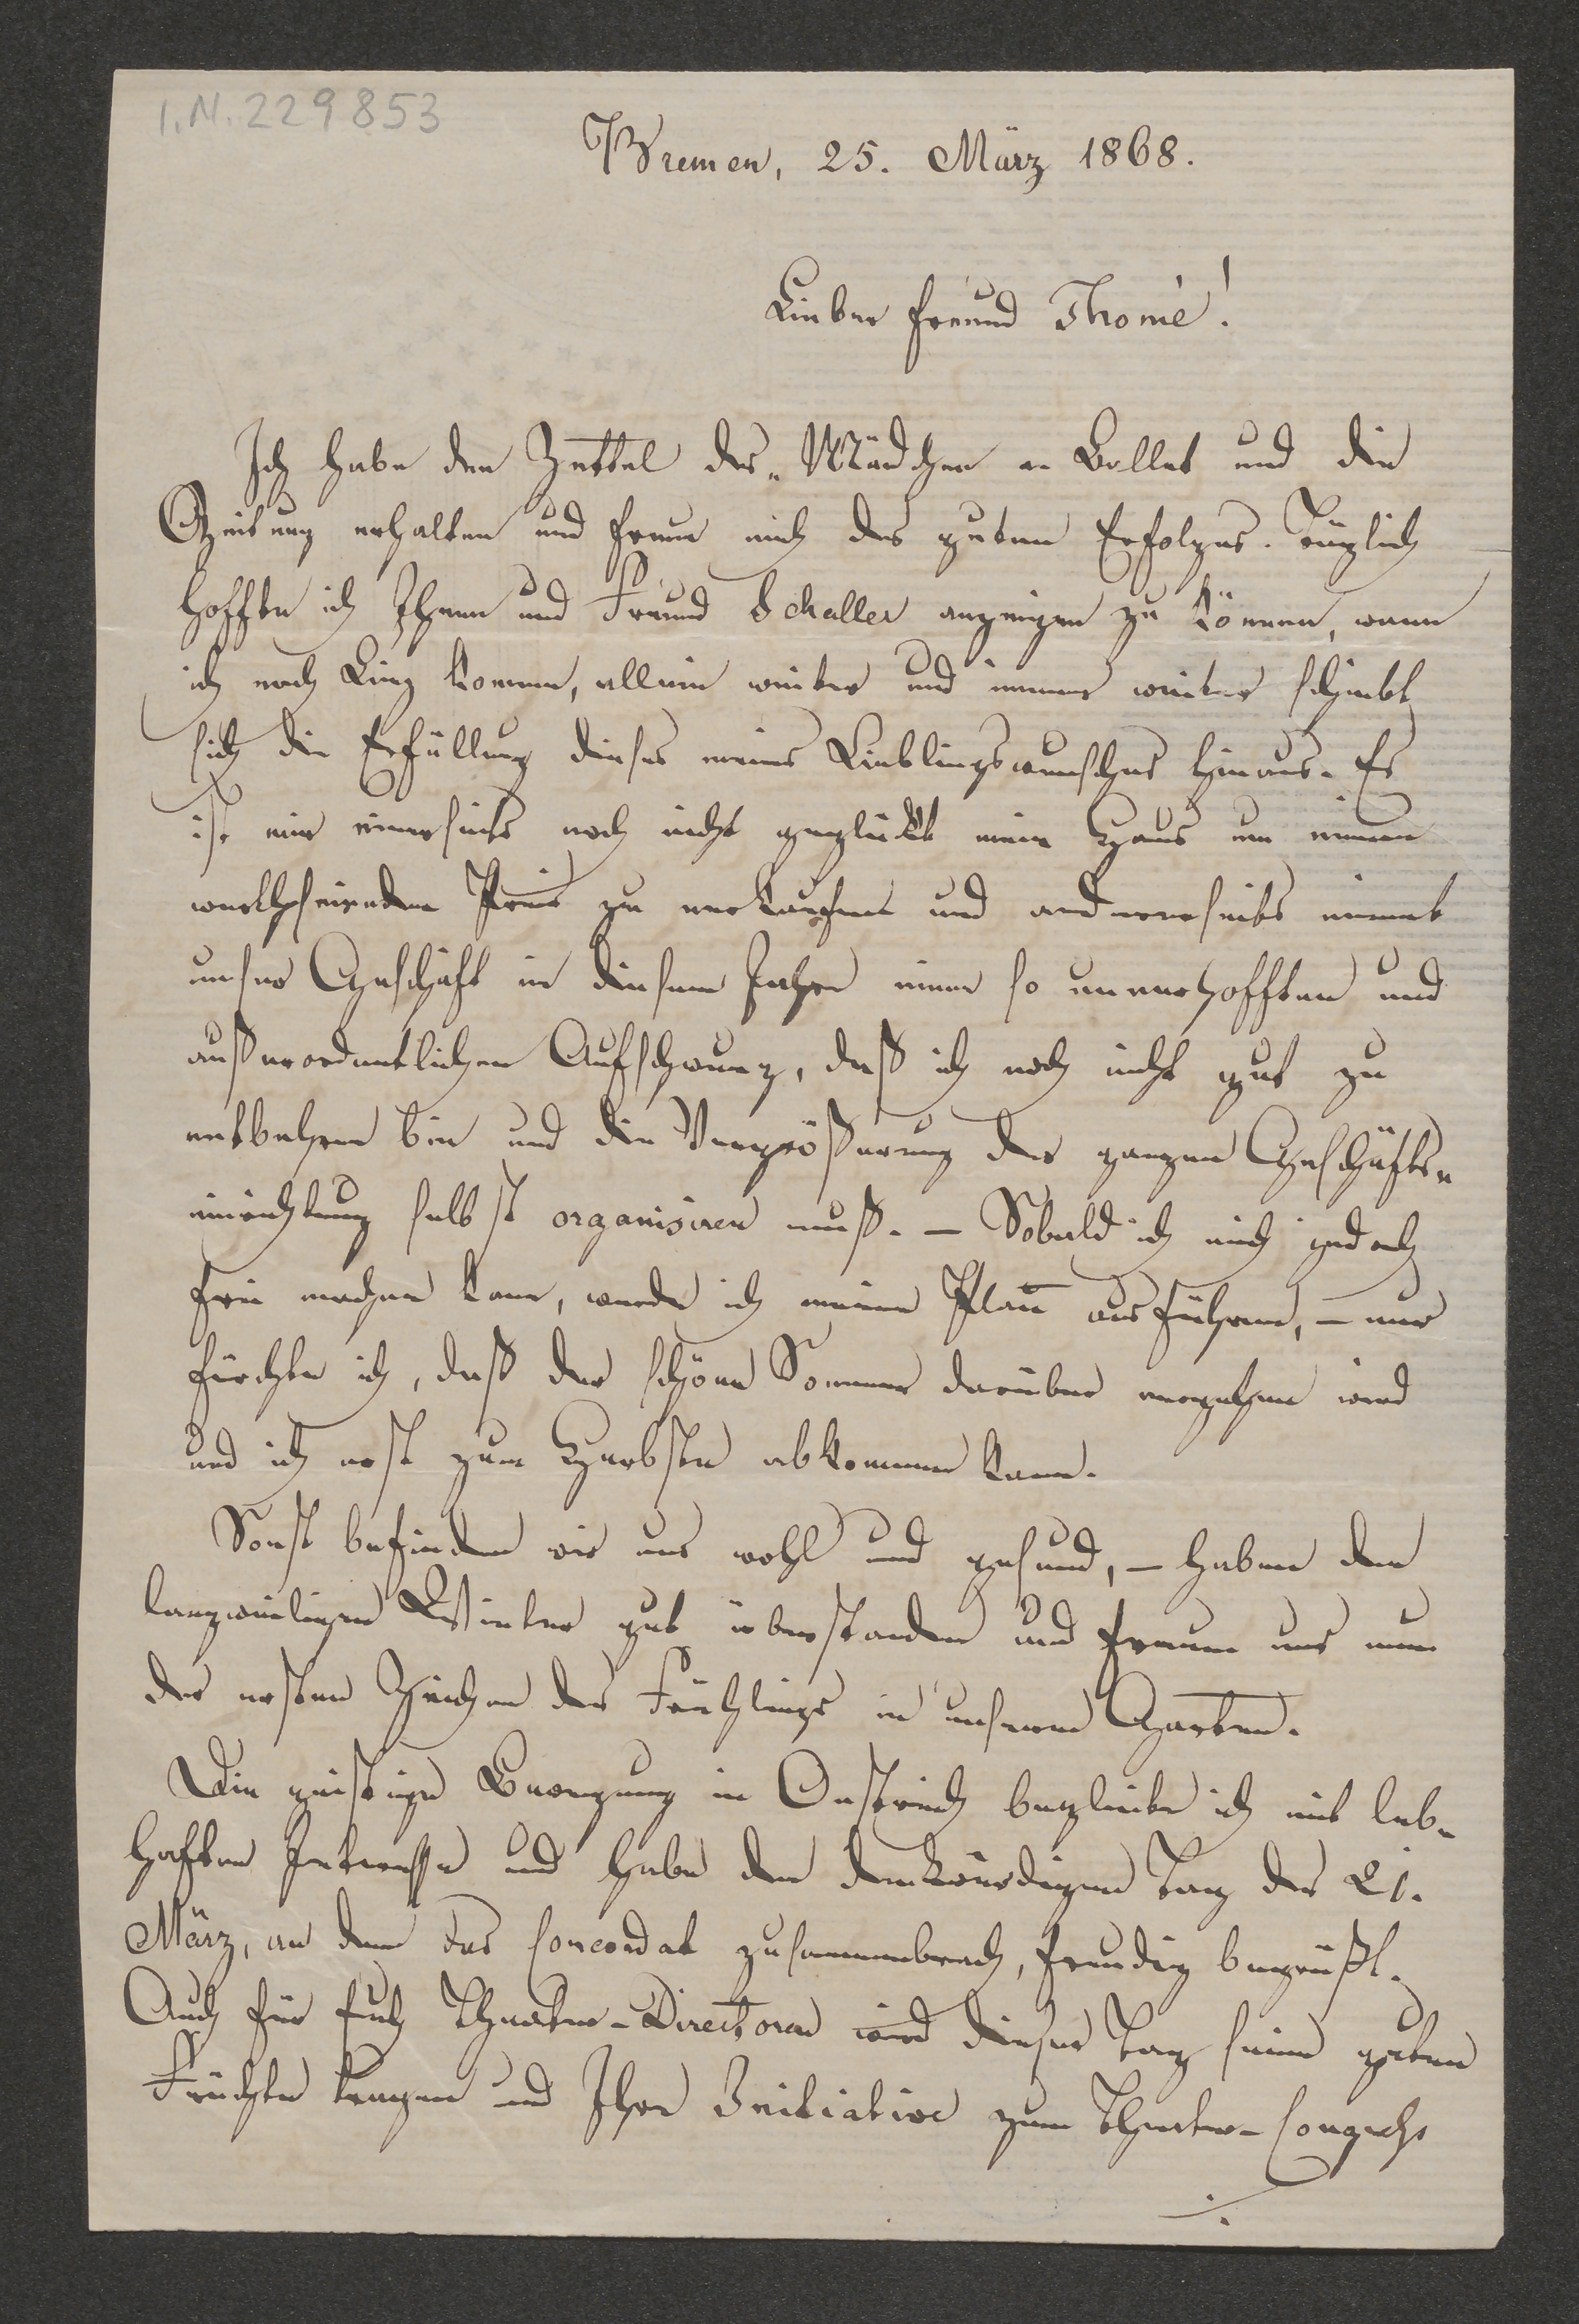 I.N. 229853
Bremen, 25. März 1868.
Lieber Freund Thomé!
Ich habe den Zettel des „Mädchen“ Ballet und die
Zeitung erhalten und freue mich des guten Erfolges. Täglich
hoffte ich Ihnen und Freund Schaller anzeigen zu können, wann
ich nach Linz komme, allein weiter und immer weiter schiebt
sich die Erfüllung dieses meines Lieblingswunsches hinaus. Es
ist mir einerseits noch nicht geglückt mein Haus um einen
Preis zu verkaufen und andererseits nimmt
unser Geschäft in diesem Jahre einen so unverhofften und
außerordentlichen Aufschwung, daß ich noch nicht gut zu
entbehren bin und die Vergrößerung der ganzen Geschäfts-
einrichtung selbst organisiren muß. – Sobald ich mich jedoch
frei machen kann, werde ich meinen Plan ausführen, – nur
fürchte ich, daß der schöne Sommer darüber vergehen wird
und ich erst zum Herbste abkommen kann.
Sonst befinden wir uns wohl und gesund, – haben den
langweiligen Winter gut überstanden und freuen uns nun
der ersten Zeichen des Frühlings in unserem Garten.
Die geistige Bewegung in Oestreich begleite ich mit leb-
haftem Interesse und habe den denkwürdigen Tag des 21.
März, an dem das Concordat zusammenbrach, freudig begrüßt.
Auch für Euch Theater-Directoren wird dieser Tag seine guten
Früchte tragen und Ihre Initiative zum Theater-Congreß
./.